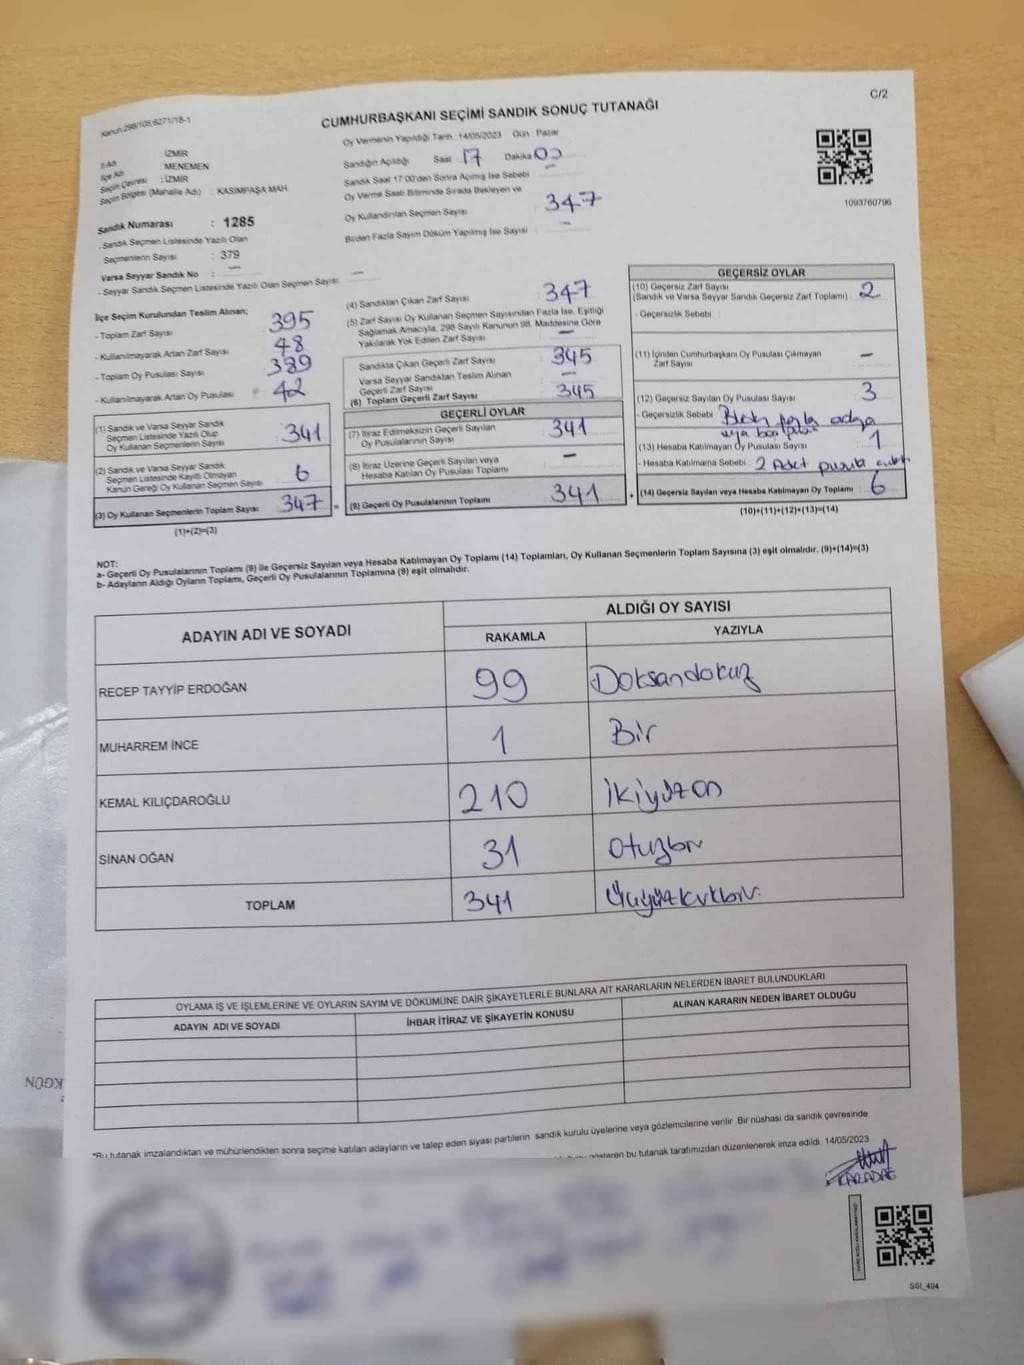 Kanun:298/105;6271/18-1
C/2
CUMHURBAŞKANI SEÇİMİ SANDIK SONUÇ TUTANAĞI
İl Adı : İZMİR
İlçe Adı : MENEMEN
Seçim Çevresi : İZMİR
Seçim Bölgesi (Mahalle Adı) : KASIMPAŞA MAH
Sandık Numarası : 1285
- Sandık Seçmen Listesinde Yazılı Olan
Seçmenlerin Sayısı : 379
Varsa Seyyar Sandık No : —
- Seyyar Sandık Seçmen Listesinde Yazılı Olan Seçmen Sayısı : —
Oy Vermenin Yapıldığı Tarih : 14/05/2023 Gün : Pazar
Sandığın Açıldığı Saat 17 Dakika 00
Sandık Saat 17:00'den Sonra Açımış İse Sebebi —
Oy Verme Saati Bitiminde Sırada Bekleyen ve
Oy Kullandırılan Seçmen Sayısı 347
Birden Fazla Sayım Döküm Yapılmış İse Sayısı —
1093760796
İlçe Seçim Kurulundan Teslim Alınan;
- Toplam Zarf Sayısı 395
- Kullanılmayarak Artan Zarf Sayısı 48
- Toplam Oy Pusulası Sayısı 389
- Kullanılmayarak Artan Oy Pusulası 42
(1) Sandık ve Varsa Seyyar Sandık
Seçmen Listesinde Yazılı Olup
Oy Kullanan Seçmenlerin Sayısı 341
(2) Sandık ve Varsa Seyyar Sandık
Seçmen Listesinde Kayıtlı Olmayan
Kanun Gereği Oy Kullanan Seçmen Sayısı 6
(3) Oy Kullanan Seçmenlerin Toplam Sayısı 347 =
(1)+(2)=(3)
(4) Sandıktan Çıkan Zarf Sayısı 347
(5) Zarf Sayısı Oy Kullanan Seçmen Sayısından Fazla İse, Eşitliği
Sağlamak Amacıyla, 298 Sayılı Kanunun 98. Maddesine Göre
Yakılarak Yok Edilen Zarf Sayısı —
Sandıkta Çıkan Geçerli Zarf Sayısı 345
Varsa Seyyar Sandıktan Teslim Alınan
Geçerli Zarf Sayısı —
(6) Toplam Geçerli Zarf Sayısı 345
GEÇERLİ OYLAR
(7) İtiraz Edilmeksizin Geçerli Sayılan
Oy Pusulalarının Sayısı 341
(8) İtiraz Üzerine Geçerli Sayılan veya
Hesaba Katılan Oy Pusulası Toplamı —
(9) Geçerli Oy Pusulalarının Toplamı 341 +
GEÇERSİZ OYLAR
(10) Geçersiz Zarf Sayısı
(Sandık ve Varsa Seyyar Sandık Geçersiz Zarf Toplamı) 2
- Geçersizlik Sebebi :
(11) İçinden Cumhurbaşkanı Oy Pusulası Çıkmayan
Zarf Sayısı —
(12) Geçersiz Sayılan Oy Pusulası Sayısı 3
- Geçersizlik Sebebi : fazla adaya
veya boş
(13) Hesaba Katılmayan Oy Pusulası Sayısı 1
- Hesaba Katılmama Sebebi : 2 Adet pusula
(14) Geçersiz Sayılan veya Hesaba Katılmayan Oy Toplamı 6
(10)+(11)+(12)+(13)=(14)
NOT:
a- Geçerli Oy Pusulalarının Toplamı (9) ile Geçersiz Sayılan veya Hesaba Katılmayan Oy Toplamı (14) Toplamları, Oy Kullanan Seçmenlerin Toplam Sayısına (3) eşit olmalıdır. (9)+(14)=(3)
b- Adayların Aldığı Oyların Toplamı, Geçerli Oy Pusulalarının Toplamına (9) eşit olmalıdır.
ADAYIN ADI VE SOYADI
ALDIĞI OY SAYISI
RAKAMLA YAZIYLA
RECEP TAYYİP ERDOĞAN 99 Doksandokuz
MUHARREM İNCE 1 Bir
KEMAL KILIÇDAROĞLU 210 ikiyüzon
SİNAN OĞAN 31 otuzbir
TOPLAM 341 Üçyüzkırkbir.
OYLAMA İŞ VE İŞLEMLERİNE VE OYLARIN SAYIM VE DÖKÜMÜNE DAİR ŞİKAYETLERLE BUNLARA AİT KARARLARIN NELERDEN İBARET BULUNDUKLARI
ADAYIN ADI VE SOYADI İHBAR İTİRAZ VE ŞİKAYETİN KONUSU ALINAN KARARIN NEDEN İBARET OLDUĞU
*Bu tutanak imzalandıktan ve mühürlendikten sonra seçime katılan adayların ve talep eden siyasi partilerin sandık kurulu üyelerine veya gözlemcilerine verilir .Bir nüshası da sandık çevresinde
gösteren bu tutanak tarafımızdan düzenlenerek imza edildi. 14/05/2023
KARADAĞ
SSI_404
KGÜN